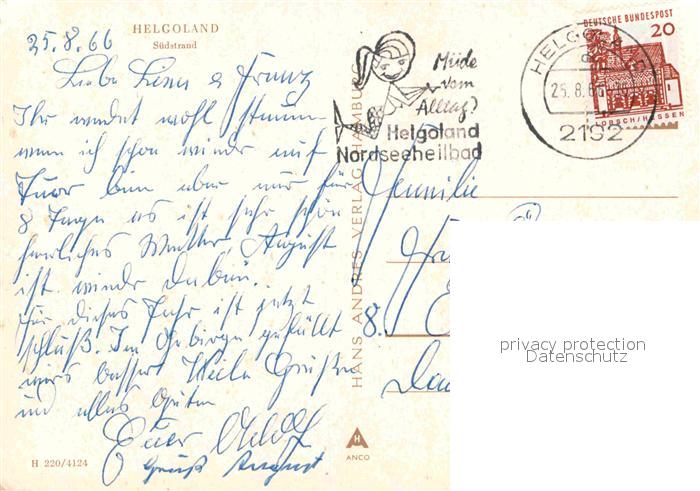 HELGOLAND
Südstrand
25.8.66
Liebe Lena & Franz
Ihr werdet wohl staunen
wenn ich schon wieder auf
Tour bin aber nur für
8 Tage es ist sehr schön
herrliches Wetter, August
ist wieder dabei.
Für dieses Jahr ist jetzt
schluß. Im Gebirge gefällt
mirs besser. Viele Grüße
und alles Gute
Euer
Gruß August
H 220/4124
HANS ANDRES VERLAG HAMBURG
ANCO
Müde
vom
Alltag?
Helgoland
Nordseeheilbad
HELGOLAND
25.8.66
2192
DEUTSCHE BUNDESPOST
20
LORSCH/HESSEN
Familie
8.
privacy protection
Datenschutz